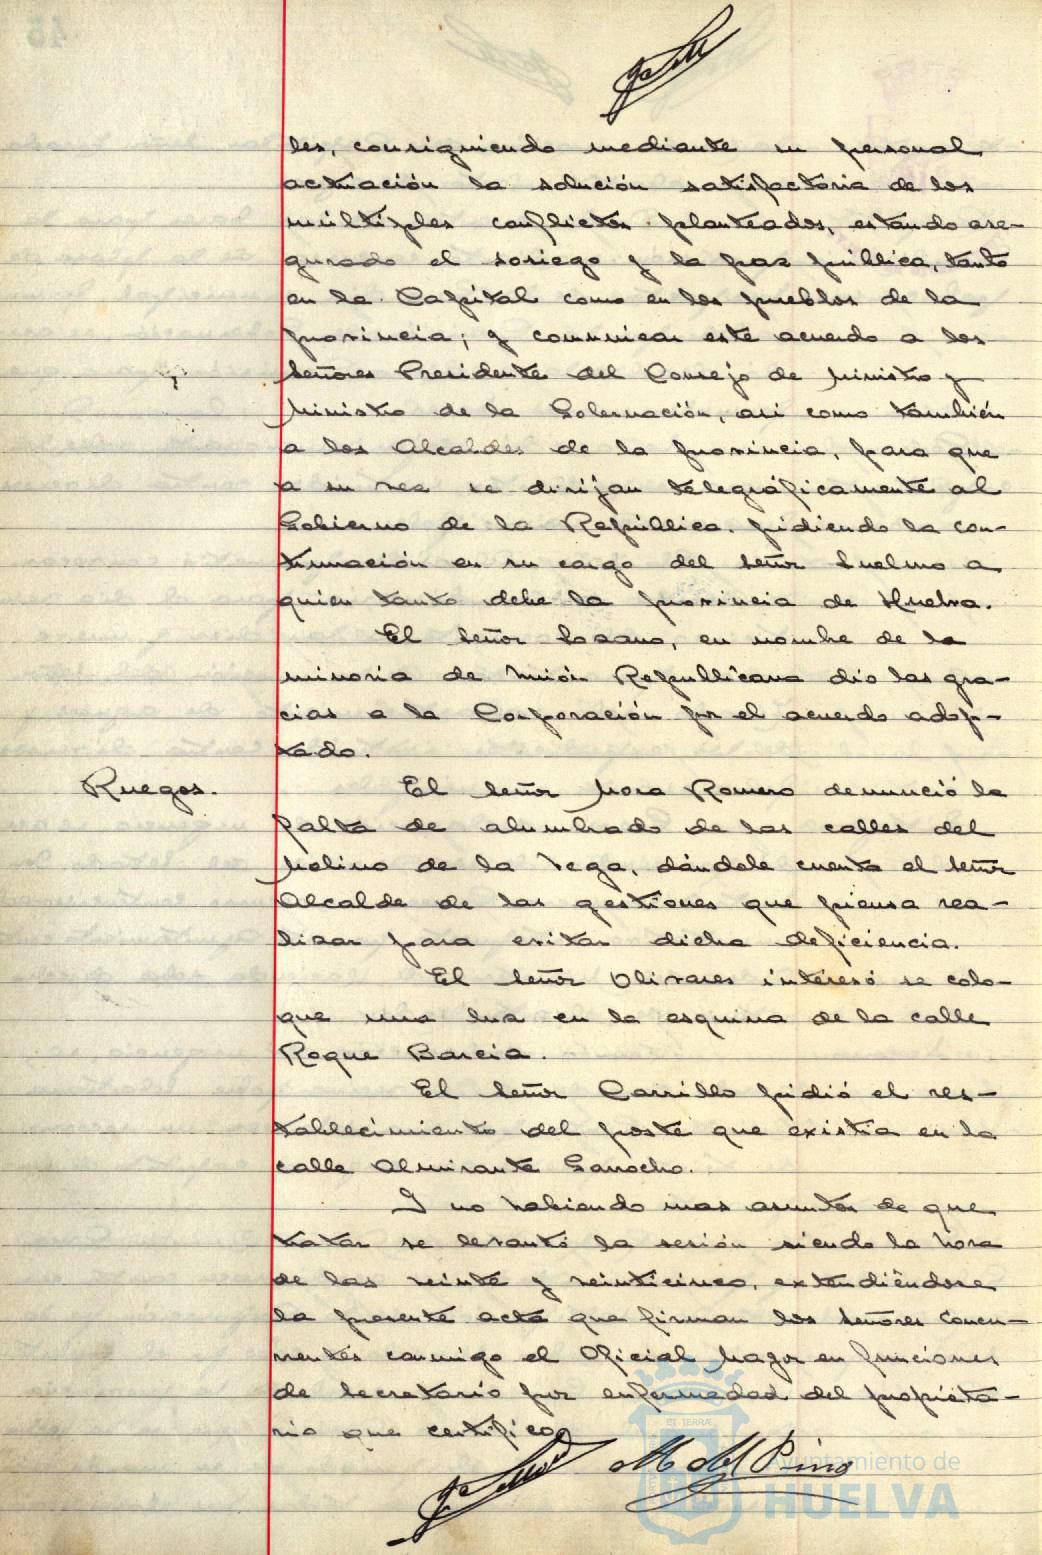 les, consiguiendo mediante su personal
actuación la solución satisfactoria de los
múltiples conflictos planteados, estando ase-
gurado el sosiego y la paz pública, tanto
en la Capital como en los pueblos de la
provincia; y comunicar este acuerdo a los
Señores Presidente del Consejo de Ministro y
Ministro de la Gobernación, asi como también
a los Alcaldes de la provincia, para que
a su vez se dirijan telegráficamente al
Gobierno de la República, pidiendo la con-
tinuación en su cargo del señor Suelmo a
quien tanto debe la provincia de Huelva.
El señor Lozano, en nombre de la
minoria de Unión Republicana dio las gra-
cias a la Corporación por el acuerdo adop-
tado.
Ruegos.
El señor Mora Romero denunció la
falta de alumbrado de las calles del
Molino de la Vega, dándole cuenta el señor
Alcalde de las gestiones que piensa rea-
lizar para evitar dicha deficiencia.
El señor Olivares interesó se colo-
que una luz en la esquina de la calle
Roque Barcia.
El señor Carrillo pidió el res-
tablecimiento del poste que existia en la
calle Almirante Garrocho.
Y no habiendo mas asuntos de que
tratar se levantó la sesión siendo la hora
de las veinte y veinticinco, extendiéndose
la presente acta que firman los señores concu-
rrentes conmigo el Oficial Mayor en funciones
de Secretario por enfermedad del propieta-
rio que certifico
M del Pino
Ayuntamiento de
HUELVA